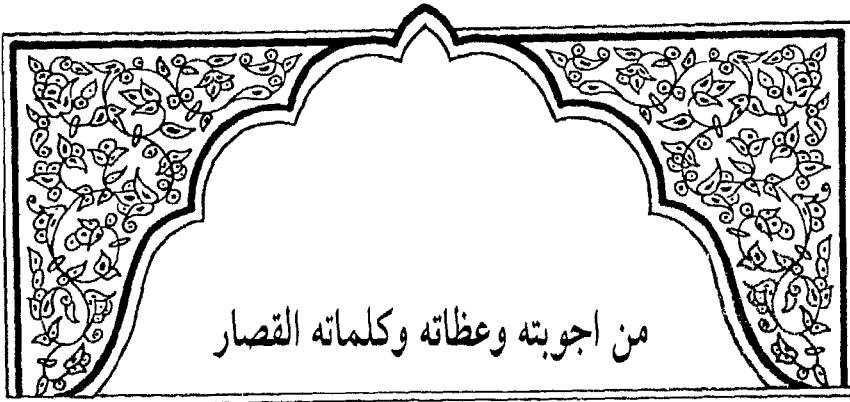 من اجوبته وعظاته وكلماته القصار